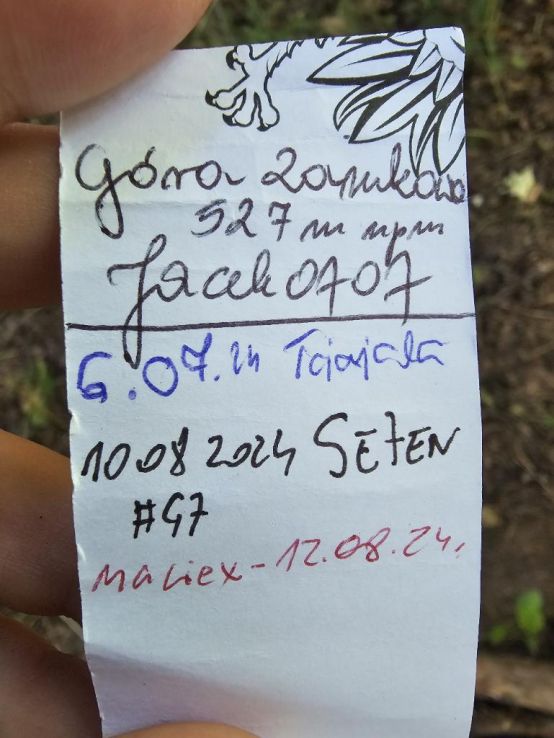 Góra Zamkowa
527 m npm
Jacek0707
6.07.24
10 08 2024 SE7EN
#47
Maciex - 12.08.24.